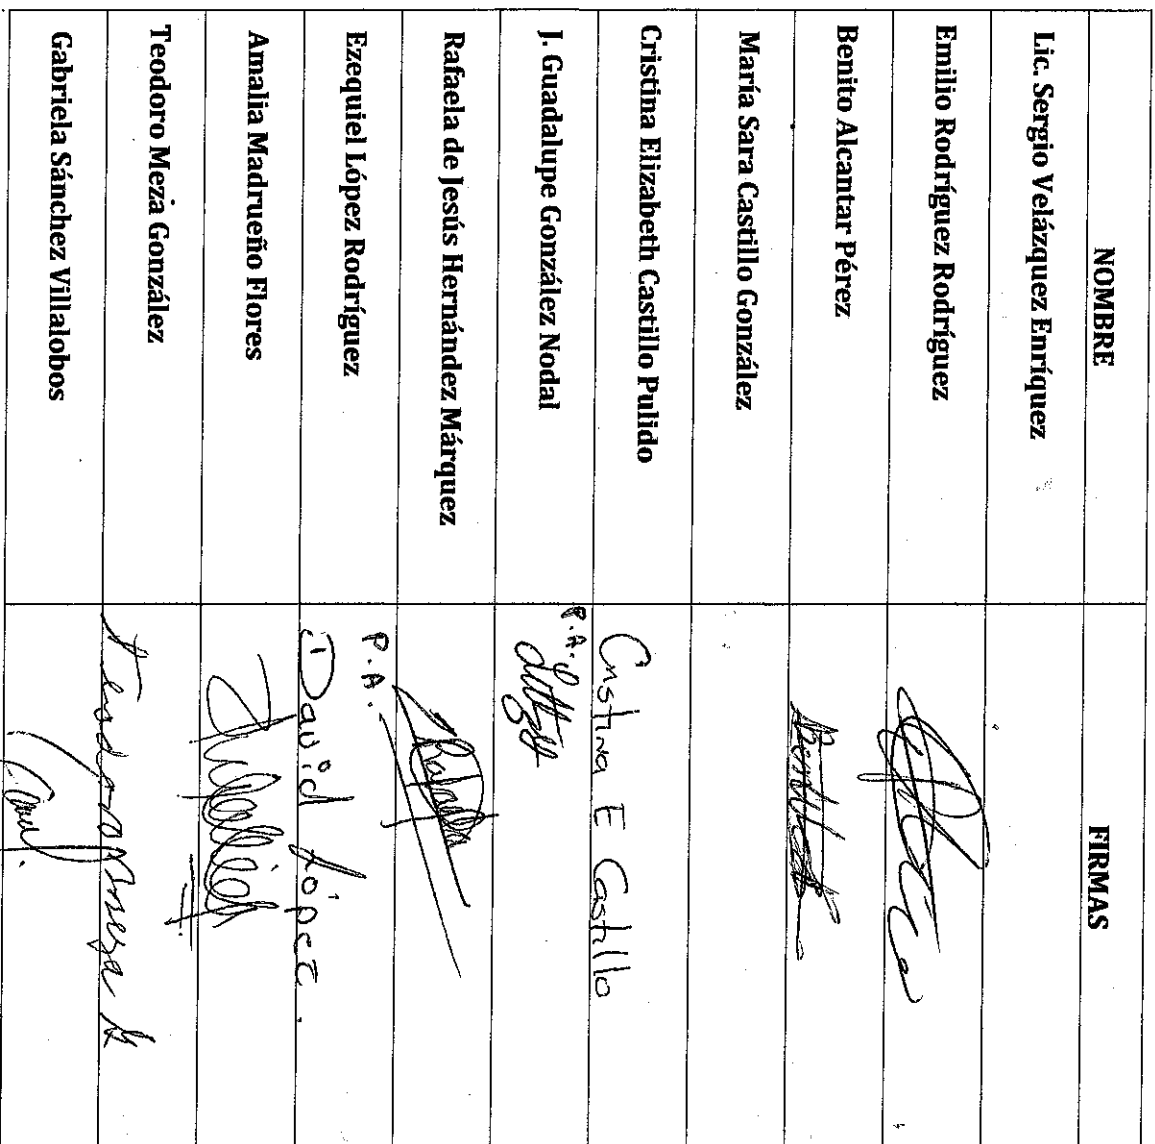 NOMBRE FIRMAS
Lic. Sergio Velázquez Enríquez
Emilio Rodríguez Rodríguez
Benito Alcantar Pérez
María Sara Castillo González
Cristina Elizabeth Castillo Pulido Cristina E Castillo
J. Guadalupe González Nodal P.A.
Rafaela de Jesús Hernández Márquez Rafaela
Ezequiel López Rodríguez P.A. David López.
Amalia Madrueño Flores
Teodoro Meza González Teodoro Meza G
Gabriela Sánchez Villalobos